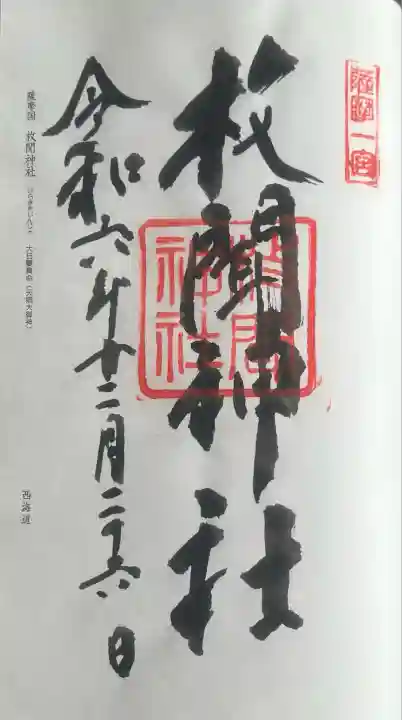 薩摩一宮
枚聞神社
枚聞神社
令和六年十二月二十六日
薩摩国 枚聞神社 ひらききじんじゃ 大日孁貴命(天照大御神)
西海道